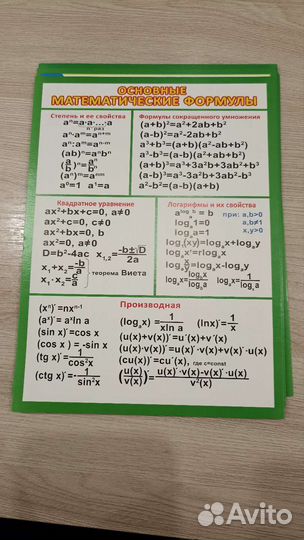 ОСНОВНЫЕ
МАТЕМАТИЧЕСКИЕ ФОРМУЛЫ
Степень и ее свойства
aⁿ=a·a·...·a
n раз
aⁿ·aᵐ=aⁿ⁺ᵐ
aⁿ:aᵐ=aⁿ⁻ᵐ
(ab)ⁿ=aⁿbⁿ
(a/b)ⁿ=aⁿ/bⁿ
(aⁿ)ᵐ=aⁿᵐ
a⁰=1 a¹=a
Формулы сокращенного умножения
(a+b)²=a²+2ab+b²
(a-b)²=a²-2ab+b²
a³+b³=(a+b)(a²-ab+b²)
a³-b³=(a-b)(a²+ab+b²)
(a+b)³=a³+3a²b+3ab²+b³
(a-b)³=a³-3a²b+3ab²-b³
a²-b²=(a-b)(a+b)
Квадратное уравнение
ax²+bx+c=0, a≠0
ax²+c=0, c≠0
ax²+bx=0, b
ax²=0, a≠0
D=b²-4ac x₁,₂=-b±√D/2a
x₁+x₂=-b/a
x₁·x₂=c/a
теорема Виета
Логарифмы и их свойства
a^logₐb = b при: a,b>0
logₐ1=0 a,b≠1
logₐa=1 x,y>0
logₐ(xy)=logₐx+logₐy
logₐxʳ=rlogₐx
logₐx/y=logₐx-logₐy
Производная
(xⁿ)´=nxⁿ⁻¹
(aˣ)´=aˣln a
(sin x)´=cos x
(cos x )´= -sin x
(tg x)´=1/cos²x
(ctg x)´=-1/sin²x
(logₐx)´=1/xln a (lnx)´=1/x
(u(x)+v(x))´=u(x)´+v(x)´
(u(x)·v(x))´=u(x)´·v(x)+v(x)´·u(x)
(cu(x))´=cu´(x), где c=const
(u(x)/v(x))´=u(x)´·v(x)-v(x)´·u(x)/v²(x)
Avito